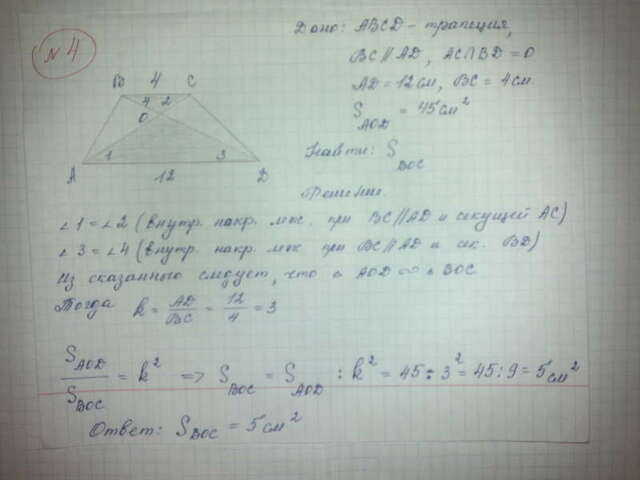 № 4
Дано: ABCD – трапеция,
BC ∥ AD, AC∩BD = O
AD = 12 см, BC = 4 см
S AOD = 45 см²
Найти: S BOC
Решение.
B 4 C
4 2
O
1 3
A 12 D
∠1 = ∠2 (внутр. накр. леж. при BC∥AD и секущей AC)
∠3 = ∠4 (внутр. накр. леж при BC∥AD и сек. BD)
Из сказанного следует, что △ AOD ∞ △ BOC
Тогда k = AD/BC = 12/4 = 3
S AOD / S BOC = k² => S BOC = S AOD : k² = 45 : 3² = 45 : 9 = 5 см²
Ответ: S BOC = 5 см²